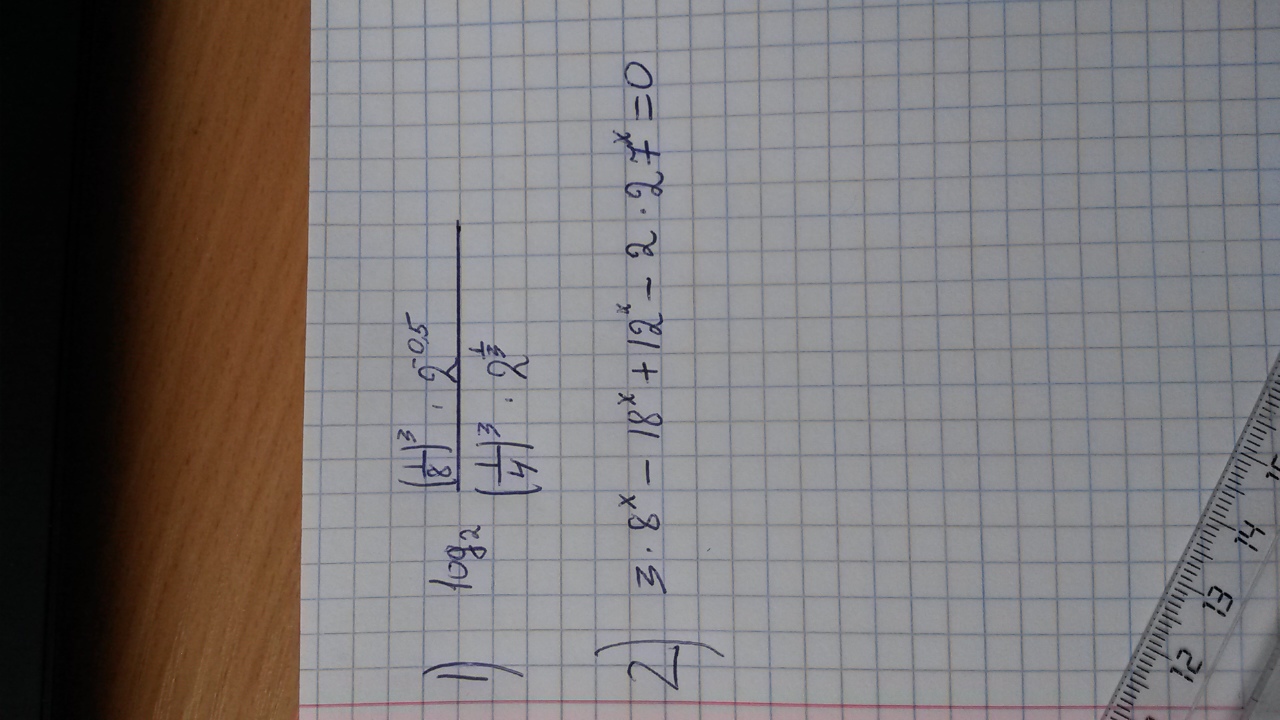 1) log₂ ((1/8)³ · 2^-0,5) / ((1/4)³ · 2^(1/3))
2) 3 · 8ˣ − 18ˣ + 12ˣ − 2 · 27ˣ = 0
12 13 14 15